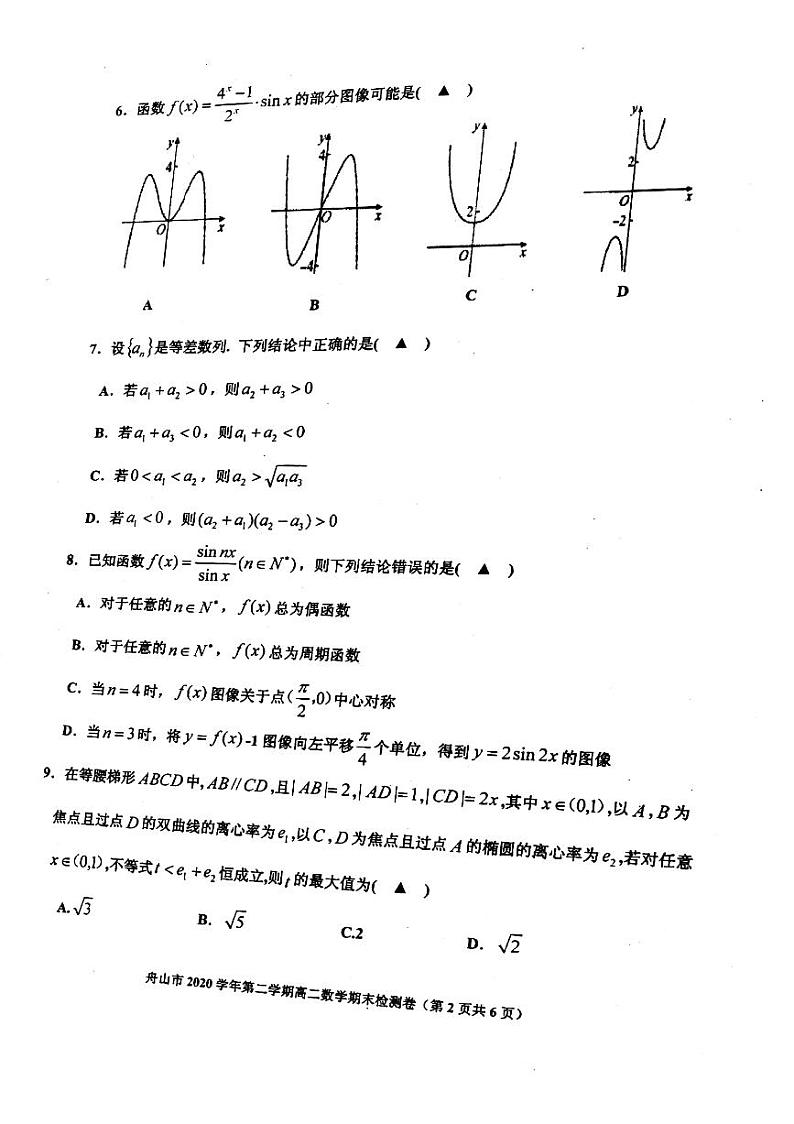 6. 函数 f(x) = (4^x −1)/2^x · sin x 的部分图像可能是( ▲ )
y 4 O x
y 4 O x −4
y 2 O x
y 2 O x −2
A B C D
7. 设{aₙ}是等差数列. 下列结论中正确的是( ▲ )
A. 若 a₁ + a₂ > 0，则 a₂ + a₃ > 0
B. 若 a₁ + a₃ < 0，则 a₁ + a₂ < 0
C. 若 0 < a₁ < a₂，则 a₂ > √(a₁a₃)
D. 若 a₁ < 0，则 (a₂ + a₁)(a₂ − a₃) > 0
8. 已知函数 f(x) = sin nx / sin x (n ∈ N*)，则下列结论错误的是( ▲ )
A. 对于任意的 n ∈ N*，f(x) 总为偶函数
B. 对于任意的 n ∈ N*，f(x) 总为周期函数
C. 当 n = 4 时，f(x) 图像关于点(π/2,0)中心对称
D. 当 n = 3 时，将 y = f(x) -1 图像向左平移 π/4 个单位，得到 y = 2 sin 2x 的图像
9. 在等腰梯形 ABCD 中, AB // CD ,且| AB |= 2,| AD |= 1,| CD |= 2x ,其中 x ∈ (0,1) ,以 A , B 为
焦点且过点 D 的双曲线的离心率为 e₁ ,以 C , D 为焦点且过点 A 的椭圆的离心率为 e₂ ,若对任意
x ∈ (0,1) ,不等式 t < e₁ + e₂ 恒成立,则 t 的最大值为( ▲ )
A. √3 B. √5 C.2 D. √2
舟山市 2020 学年第二学期高二数学期末检测卷（第 2 页共 6 页）